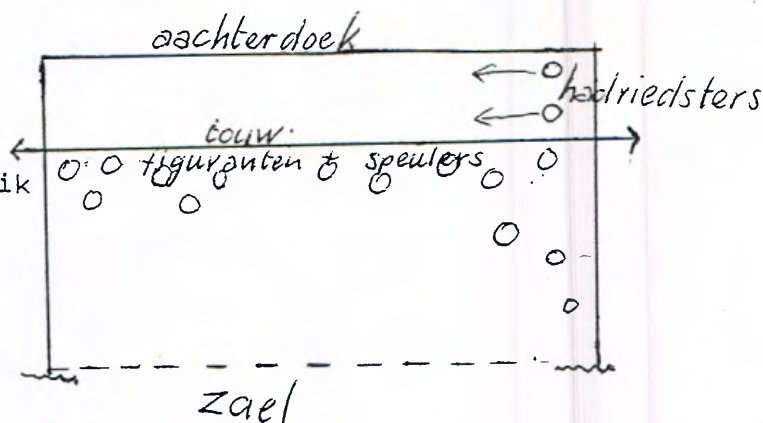 aachterdoek
hadriedsters
touw.
figuranten + speulers
ik
zael